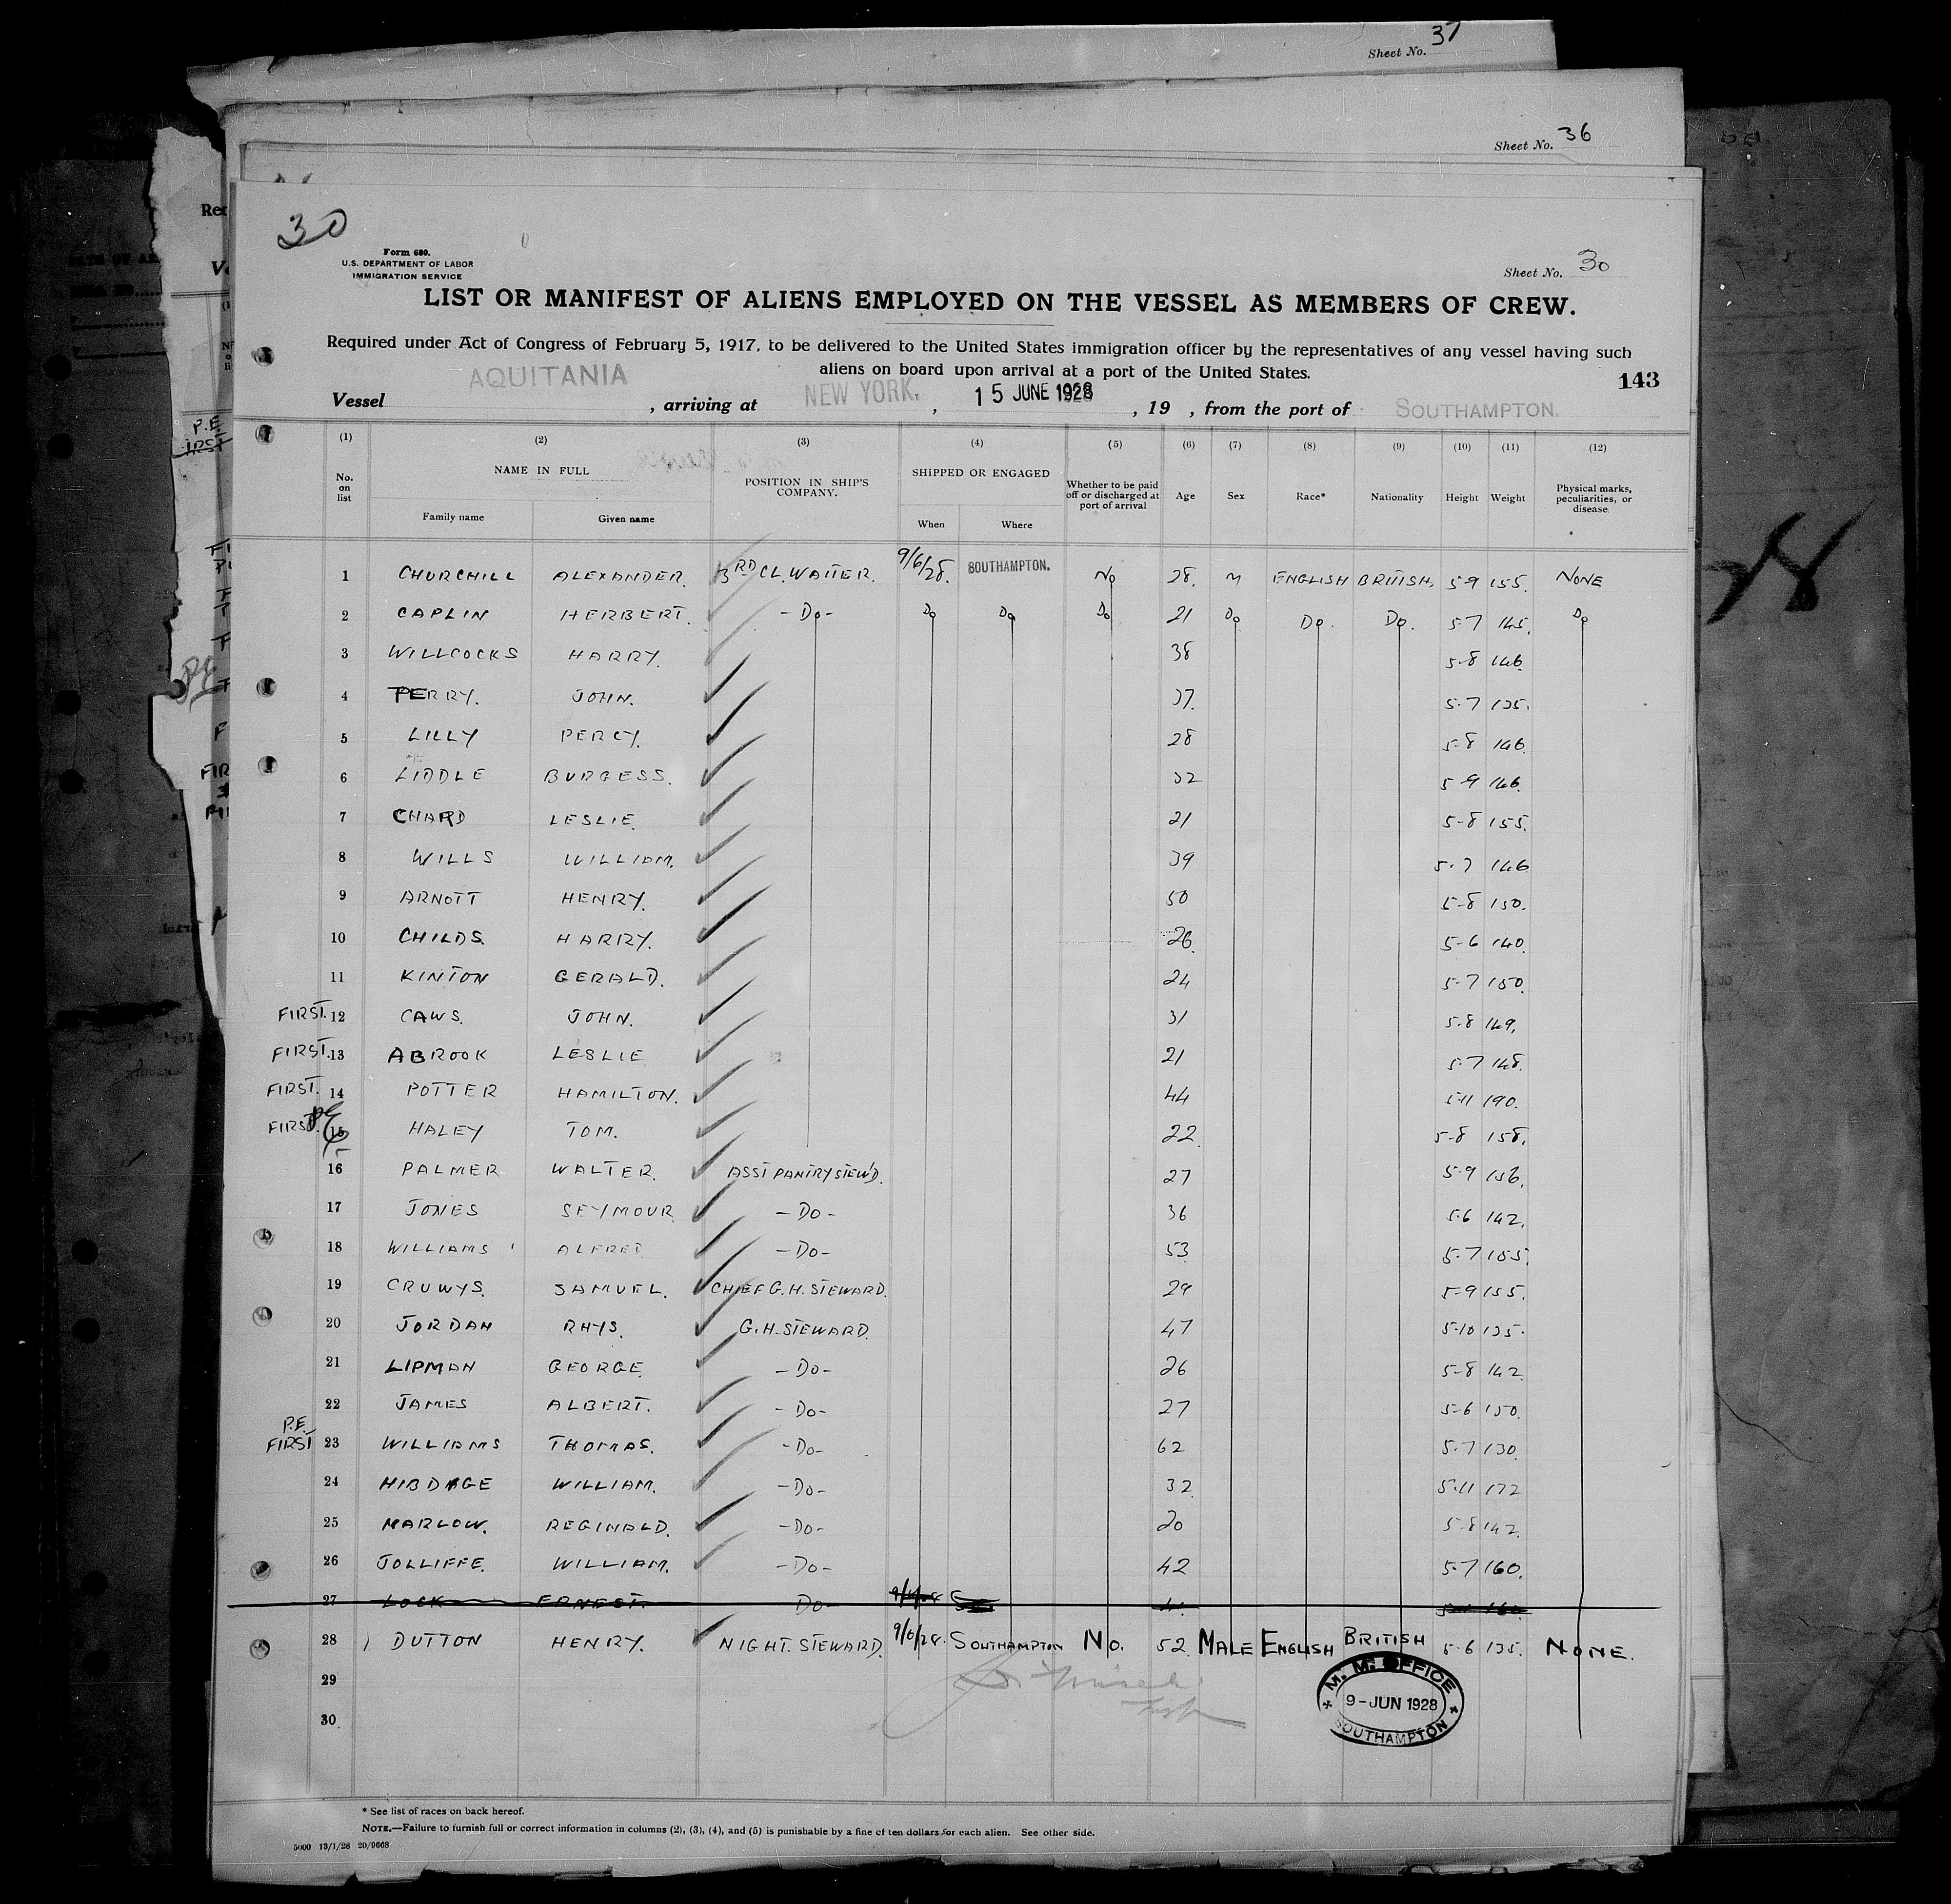 Sheet No. 37
Sheet No. 36
30
Form 680.
U.S. DEPARTMENT OF LABOR
IMMIGRATION SERVICE
Sheet No. 30
LIST OR MANIFEST OF ALIENS EMPLOYED ON THE VESSEL AS MEMBERS OF CREW.
Required under Act of Congress of February 5, 1917, to be delivered to the United States immigration officer by the representatives of any vessel having such
aliens on board upon arrival at a port of the United States.
143
Vessel AQUITANIA, arriving at NEW YORK, 15 JUNE 1928, 19 , from the port of SOUTHAMPTON.
(1) (2) (3) (4) (5) (6) (7) (8) (9) (10) (11) (12)
No. on list NAME IN FULL POSITION IN SHIP'S COMPANY. SHIPPED OR ENGAGED Whether to be paid off or discharged at port of arrival Age Sex Race* Nationality Height Weight Physical marks, peculiarities, or disease.
Family name Given name When Where
1 CHURCHILL ALEXANDER. 3RD CL. WAITER. 9/6/28. SOUTHAMPTON. No 28. M ENGLISH BRITISH. 5-9 155. NONE
2 CAPLIN HERBERT. -Do- Do Do Do 21 Do Do. Do. 5-7 145. Do
3 WILLCOCKS HARRY. 38 5-8 146.
4 PERRY. JOHN. 37. 5-7 135.
5 LILLY PERCY. 28 5-8 146.
6 LIDDLE BURGESS. 32 5-9 146.
7 CHARD LESLIE. 21 5-8 155.
8 WILLS WILLIAM. 39 5-7 146
9 ARNOTT HENRY. 50 5-8 150.
10 CHILDS. HARRY. 26. 5-6 140.
11 KINTON GERALD. 24 5-7 150.
FIRST. 12 CAWS. JOHN. 31 5-8 149.
FIRST. 13 ABROOK LESLIE 21 5-7 148.
FIRST. 14 POTTER HAMILTON. 44 5-11 190.
FIRST. PE 15 HALEY TOM. 22. 5-8 158.
16 PALMER WALTER. ASST PANTRY STEW'D. 27 5-9 156.
17 JONES SEYMOUR -Do- 36 5-6 142.
18 WILLIAMS ALFRED -Do- 53 5-7 155.
19 CRUWYS. SAMUEL. CHIEF G.H. STEWARD. 29 5-9 155.
20 JORDAN RHYS. G.H. STEWARD. 47 5-10 135.
21 LIPMAN GEORGE. -Do- 26 5-8 142.
22 JAMES ALBERT. -Do- 27 5-6 150.
P.E.
FIRST 23 WILLIAMS THOMAS. -Do- 62 5-7 130.
24 HIBDAGE WILLIAM. -Do- 32. 5-11 172
25 MARLOW. REGINALD. -Do- 20 5-8 142.
26 JOLLIFFE. WILLIAM. -Do- 42 5-7 160.
27 LOCK ERNEST. Do-
28 DUTTON HENRY. NIGHT. STEWARD. 9/6/28. SOUTHAMPTON No. 52. MALE ENGLISH BRITISH 5-6 135. NONE.
29
30
M. M. OFFICE
9-JUN 1928
SOUTHAMPTON
* See list of races on back hereof.
NOTE.—Failure to furnish full or correct information in columns (2), (3), (4), and (5) is punishable by a fine of ten dollars for each alien. See other side.
5000 13/1/28 20/9668